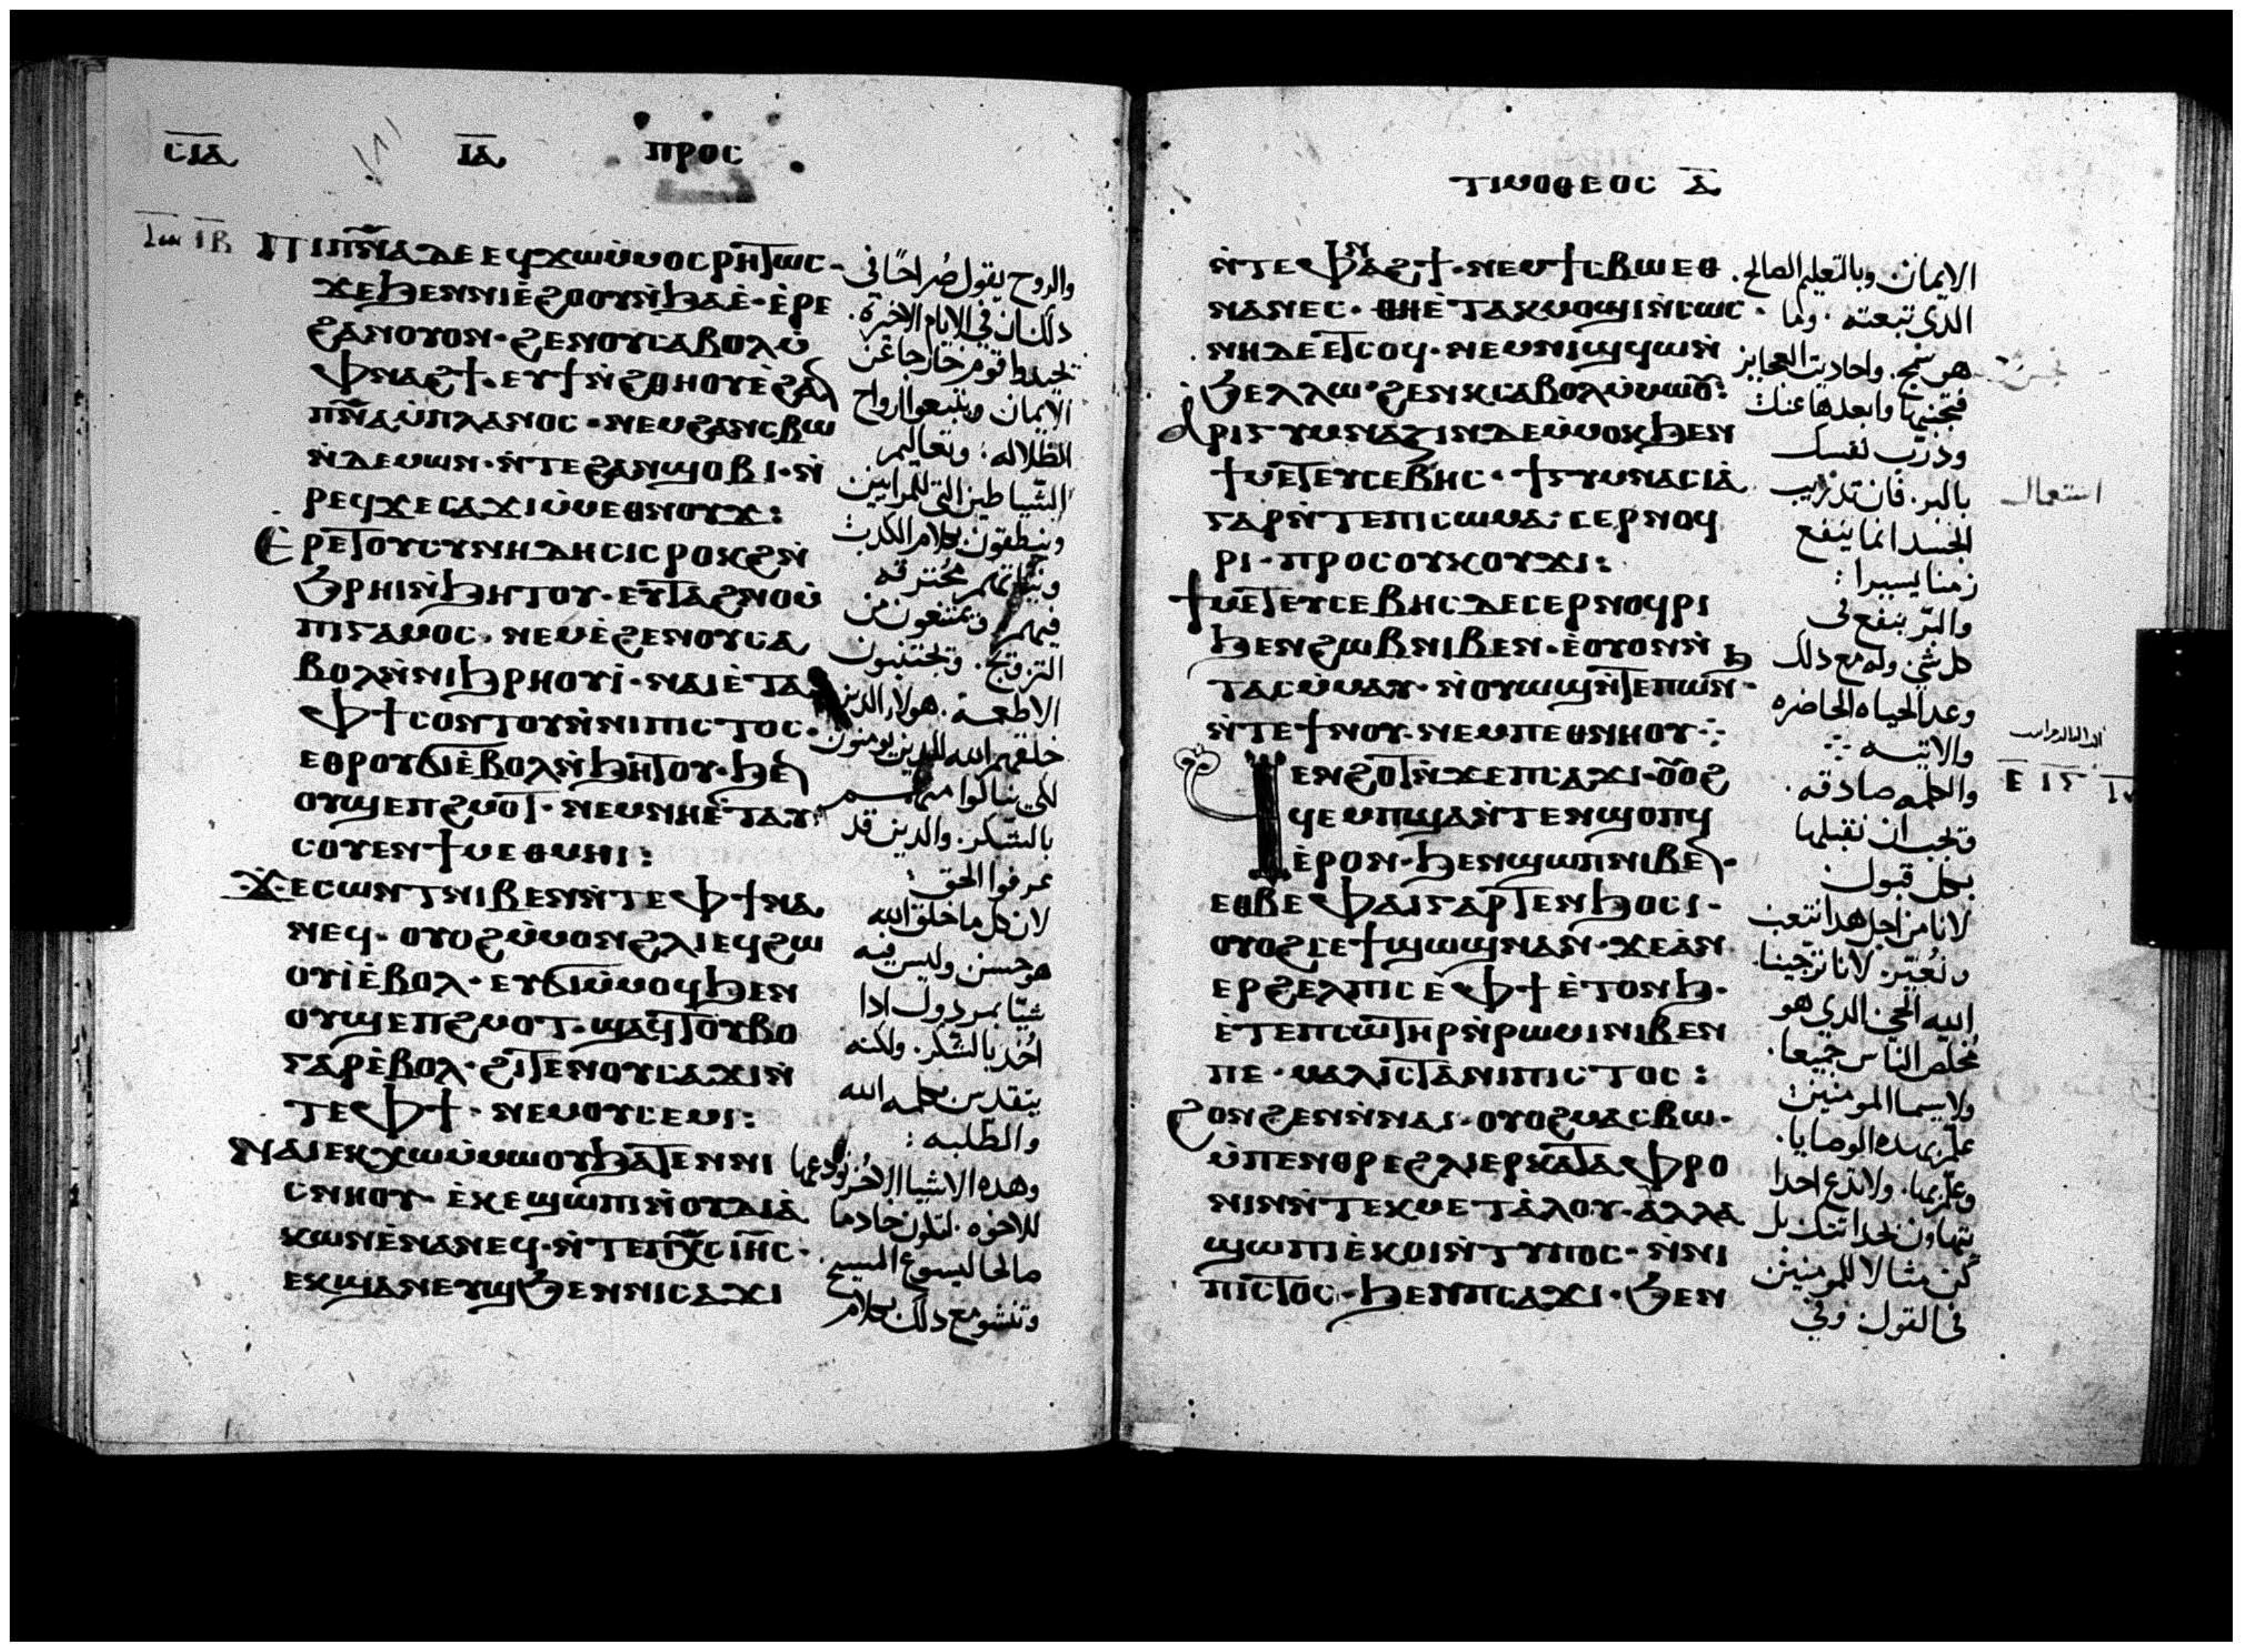 ⲥⲓⲁ ⲓⲁ ⲡⲣⲟⲥ
ⲓⲃ
ⲡⲓⲡⲛⲁ ⲇⲉ ⲉϥϫⲱⲙⲙⲟⲥ ⲣⲏⲧⲱⲥ·
ϫⲉϧⲉⲛⲛⲓⲉϩⲟⲟⲩⲛϧⲁⲉ·ⲉⲣⲉ
ϩⲁⲛⲟⲩⲟⲛ·ϩⲉⲛⲟⲩⲥⲁⲃⲟⲗⲙ
ⲫⲛⲁϩϯ·ⲉⲩϯⲛϩⲑⲏⲟⲩⲉϩⲁ
ⲡⲛⲁⲙⲡⲗⲁⲛⲟⲥ·ⲛⲉⲙϩⲁⲛⲥⲃⲱ
ⲛⲇⲉⲙⲱⲛ·ⲛⲧⲉϩⲁⲛϣⲟⲃⲓ·ⲛ
ⲣⲉϥϫⲉⲥⲁϫⲓⲙⲙⲉⲑⲛⲟⲩϫ:
ⲉⲣⲉⲧⲟⲩⲥⲩⲛⲏⲇⲏⲥⲓⲥⲣⲟⲕϩⲛ
ϧⲣⲏⲓⲛϧⲏⲧⲟⲩ·ⲉⲩⲧⲁϩⲛⲟⲙ
ⲡⲓⲅⲁⲙⲟⲥ·ⲛⲉⲙⲉϩⲉⲛⲟⲩⲥⲁ
ⲃⲟⲗⲛⲛⲓϧⲣⲏⲟⲩⲓ·ⲛⲁⲓⲉⲧⲁ
ⲫϯⲥⲟⲛⲧⲟⲩⲛⲛⲓⲡⲓⲥⲧⲟⲥ·
ⲉⲑⲣⲟⲩϭⲓⲉⲃⲟⲗⲛϧⲏⲧⲟⲩ·ϧⲉ
ⲟⲩϣⲉⲡϩⲙⲟⲧ·ⲛⲉⲙⲛⲏⲉⲧⲁⲩ
ⲥⲟⲩⲉⲛϯⲙⲉⲑⲙⲏⲓ:
ϫⲉⲥⲱⲛⲧⲛⲓⲃⲉⲛⲛⲧⲉⲫϯⲛⲁ
ⲛⲉϥ·ⲟⲩⲟϩⲙⲙⲟⲛϩⲗⲓⲉϥϩⲱ
ⲟⲩⲓⲉⲃⲟⲗ·ⲉⲩϭⲓⲙⲙⲟϥϧⲉⲛ
ⲟⲩϣⲉⲡϩⲙⲟⲧ·ϣⲁϥⲧⲟⲩⲃⲟ
ⲅⲁⲣⲉⲃⲟⲗ·ϩⲓⲧⲉⲛⲟⲩⲥⲁϫⲓⲛ
ⲧⲉⲫϯ·ⲛⲉⲙⲟⲩⲥⲉⲙⲓ:
ⲛⲁⲓⲉⲕⲭⲱⲙⲙⲱⲟⲩϧⲁⲧⲉⲛⲛⲓ
ⲥⲛⲏⲟⲩ·ⲉⲕⲉϣⲱⲡⲓⲛⲟⲩⲇⲓⲁ
ⲕⲱⲛⲉⲛⲁⲛⲉϥ·ⲛⲧⲉⲡⲭⲥⲓⲏⲥ·
ⲉⲕϣⲁⲛⲉⲩϣϧⲉⲛⲛⲓⲥⲁϫⲓ
والروح يقول صراحًا فى
دلك ان في الايام الاخرة.
قوم
الايمان ويتبعوا ارواح
الظلاله: وتعاليم
الشياطين التى للمرايين
وينطقون بكلام الكدب
ونياتهم محترقه
فيهم ويمتنعون من
التزويج. ويجتنبون
الاطعمة. هولاء الدين
خلقهم الله للدين يومنون
لكي ينالوا منهم
بالشكر. والدين قد
عرفوا الحق:
لان كل ما خلق الله
هو حسن وليس فيه
شيا مردول ادا
اخد بالشكر. ولكنه
يتقدس بكلمه الله
والطلبه:
وهده الاشيا
للاخوه. لتكون خادما
صالحا ليسوع المسيح
وتنشو مع دلك بكلام
ⲧⲓⲙⲟⲑⲉⲟⲥ ⲁ
ⲛⲧⲉⲫⲛⲁϩϯ·ⲛⲉⲙϯⲥⲃⲱⲉⲑ
ⲛⲁⲛⲉⲥ·ⲑⲏⲉⲧⲁⲕⲙⲟϣⲓⲛⲥⲱⲥ·
ⲛⲏⲇⲉⲉⲧⲥⲟϥ·ⲛⲉⲙⲛⲓϣϥⲱⲛ
ϧⲉⲗⲗⲱ·ϩⲉⲛⲕⲥⲁⲃⲟⲗⲙⲙⲱⲟ:
ⲁⲣⲓⲅⲩⲙⲛⲁⲍⲓⲛⲇⲉⲙⲙⲟⲕϧⲉⲛ
ϯⲙⲉⲧⲉⲩⲥⲉⲃⲏⲥ·ϯⲅⲩⲙⲛⲁⲥⲓⲁ
ⲅⲁⲣⲛⲧⲉⲡⲓⲥⲱⲙⲁ:ⲥⲉⲣⲛⲟϥ
ⲣⲓ·ⲡⲣⲟⲥⲟⲩⲕⲟⲩϫⲓ:
ϯⲙⲉⲧⲉⲩⲥⲉⲃⲏⲥⲇⲉⲥⲉⲣⲛⲟϥⲣⲓ
ϧⲉⲛϩⲱⲃⲛⲓⲃⲉⲛ·ⲉⲟⲩⲟⲛⲛ
ⲧⲁⲥⲙⲙⲁⲩ·ⲛⲟⲩⲱϣⲛⲧⲉⲡⲱⲛϧ
ⲛⲧⲉϯⲛⲟⲩ·ⲛⲉⲙⲡⲉⲑⲛⲏⲟⲩ⁘
ϥⲉⲛϩⲟⲧⲛϫⲉⲡⲥⲁϫⲓ·ⲟⲟϩ
ϥⲉⲙⲡϣⲁⲛⲧⲉⲛϣⲟⲡϥ
ⲉⲣⲟⲛ·ϧⲉⲛϣⲱⲡⲛⲓⲃⲉ·
ⲉⲑⲃⲉⲫⲁⲓⲅⲁⲣⲧⲉⲛϧⲟⲥⲓ·
ⲟⲩⲟϩⲥⲉϯϣⲱϣⲛⲁⲛ·ϫⲉⲁⲛ
ⲉⲣϩⲉⲗⲡⲓⲥⲉⲫϯⲉⲧⲟⲛϧ·
ⲉⲧⲉⲡⲥⲱⲧⲏⲣⲛⲣⲱⲙⲓⲛⲓⲃⲉⲛ
ⲡⲉ·ⲙⲁⲗⲓⲥⲧⲁⲛⲓⲡⲓⲥⲧⲟⲥ:
ϩⲟⲛϩⲉⲛⲛⲛⲁⲓ·ⲟⲩⲟϩⲙⲁⲥⲃⲱ·
ⲙⲡⲉⲛⲑⲣⲉϩⲗⲓⲉⲣⲕⲁⲧⲁⲫⲣⲟ
ⲛⲓⲛⲛⲧⲉⲕⲙⲉⲧⲁⲗⲟⲩ·ⲁⲗⲗⲁ
ϣⲱⲡⲓⲉⲕⲟⲓⲛⲧⲩⲡⲟⲥ·ⲛⲛⲓ
ⲡⲓⲥⲧⲟⲥ·ϧⲉⲛⲡⲥⲁϫⲓ·ϧⲉⲛ
الايمان. وبالتعليم الصالح.
الدى تبعته. وما
هو سمج. واحاديث العجايز
فتجنبها وابعدها عنك
ودرّب نفسك
بالبر. فان تدريب
الجسد انما ينفع
زمنا يسيرا:
والبرّ ينفع فى
كل شي. وله مع دلك
وعد الحياه الحاضره
والاتيه ⁘
والكلمه صادقه.
ويجب ان نقبلها
بكل قبول
لانا من اجل هدا نتعب
ونُعيّر. لانا ترجينا.
الله الحي الدي هو
مخلص الناس جميعا.
ولاسيما المومنين:
علّم بهده الوصايا.
وعلّم بها. ولا تدع احدا
يتهاون بحداثتك بل
كن مثالا للمومنين
فى القول. وفي
استعمال